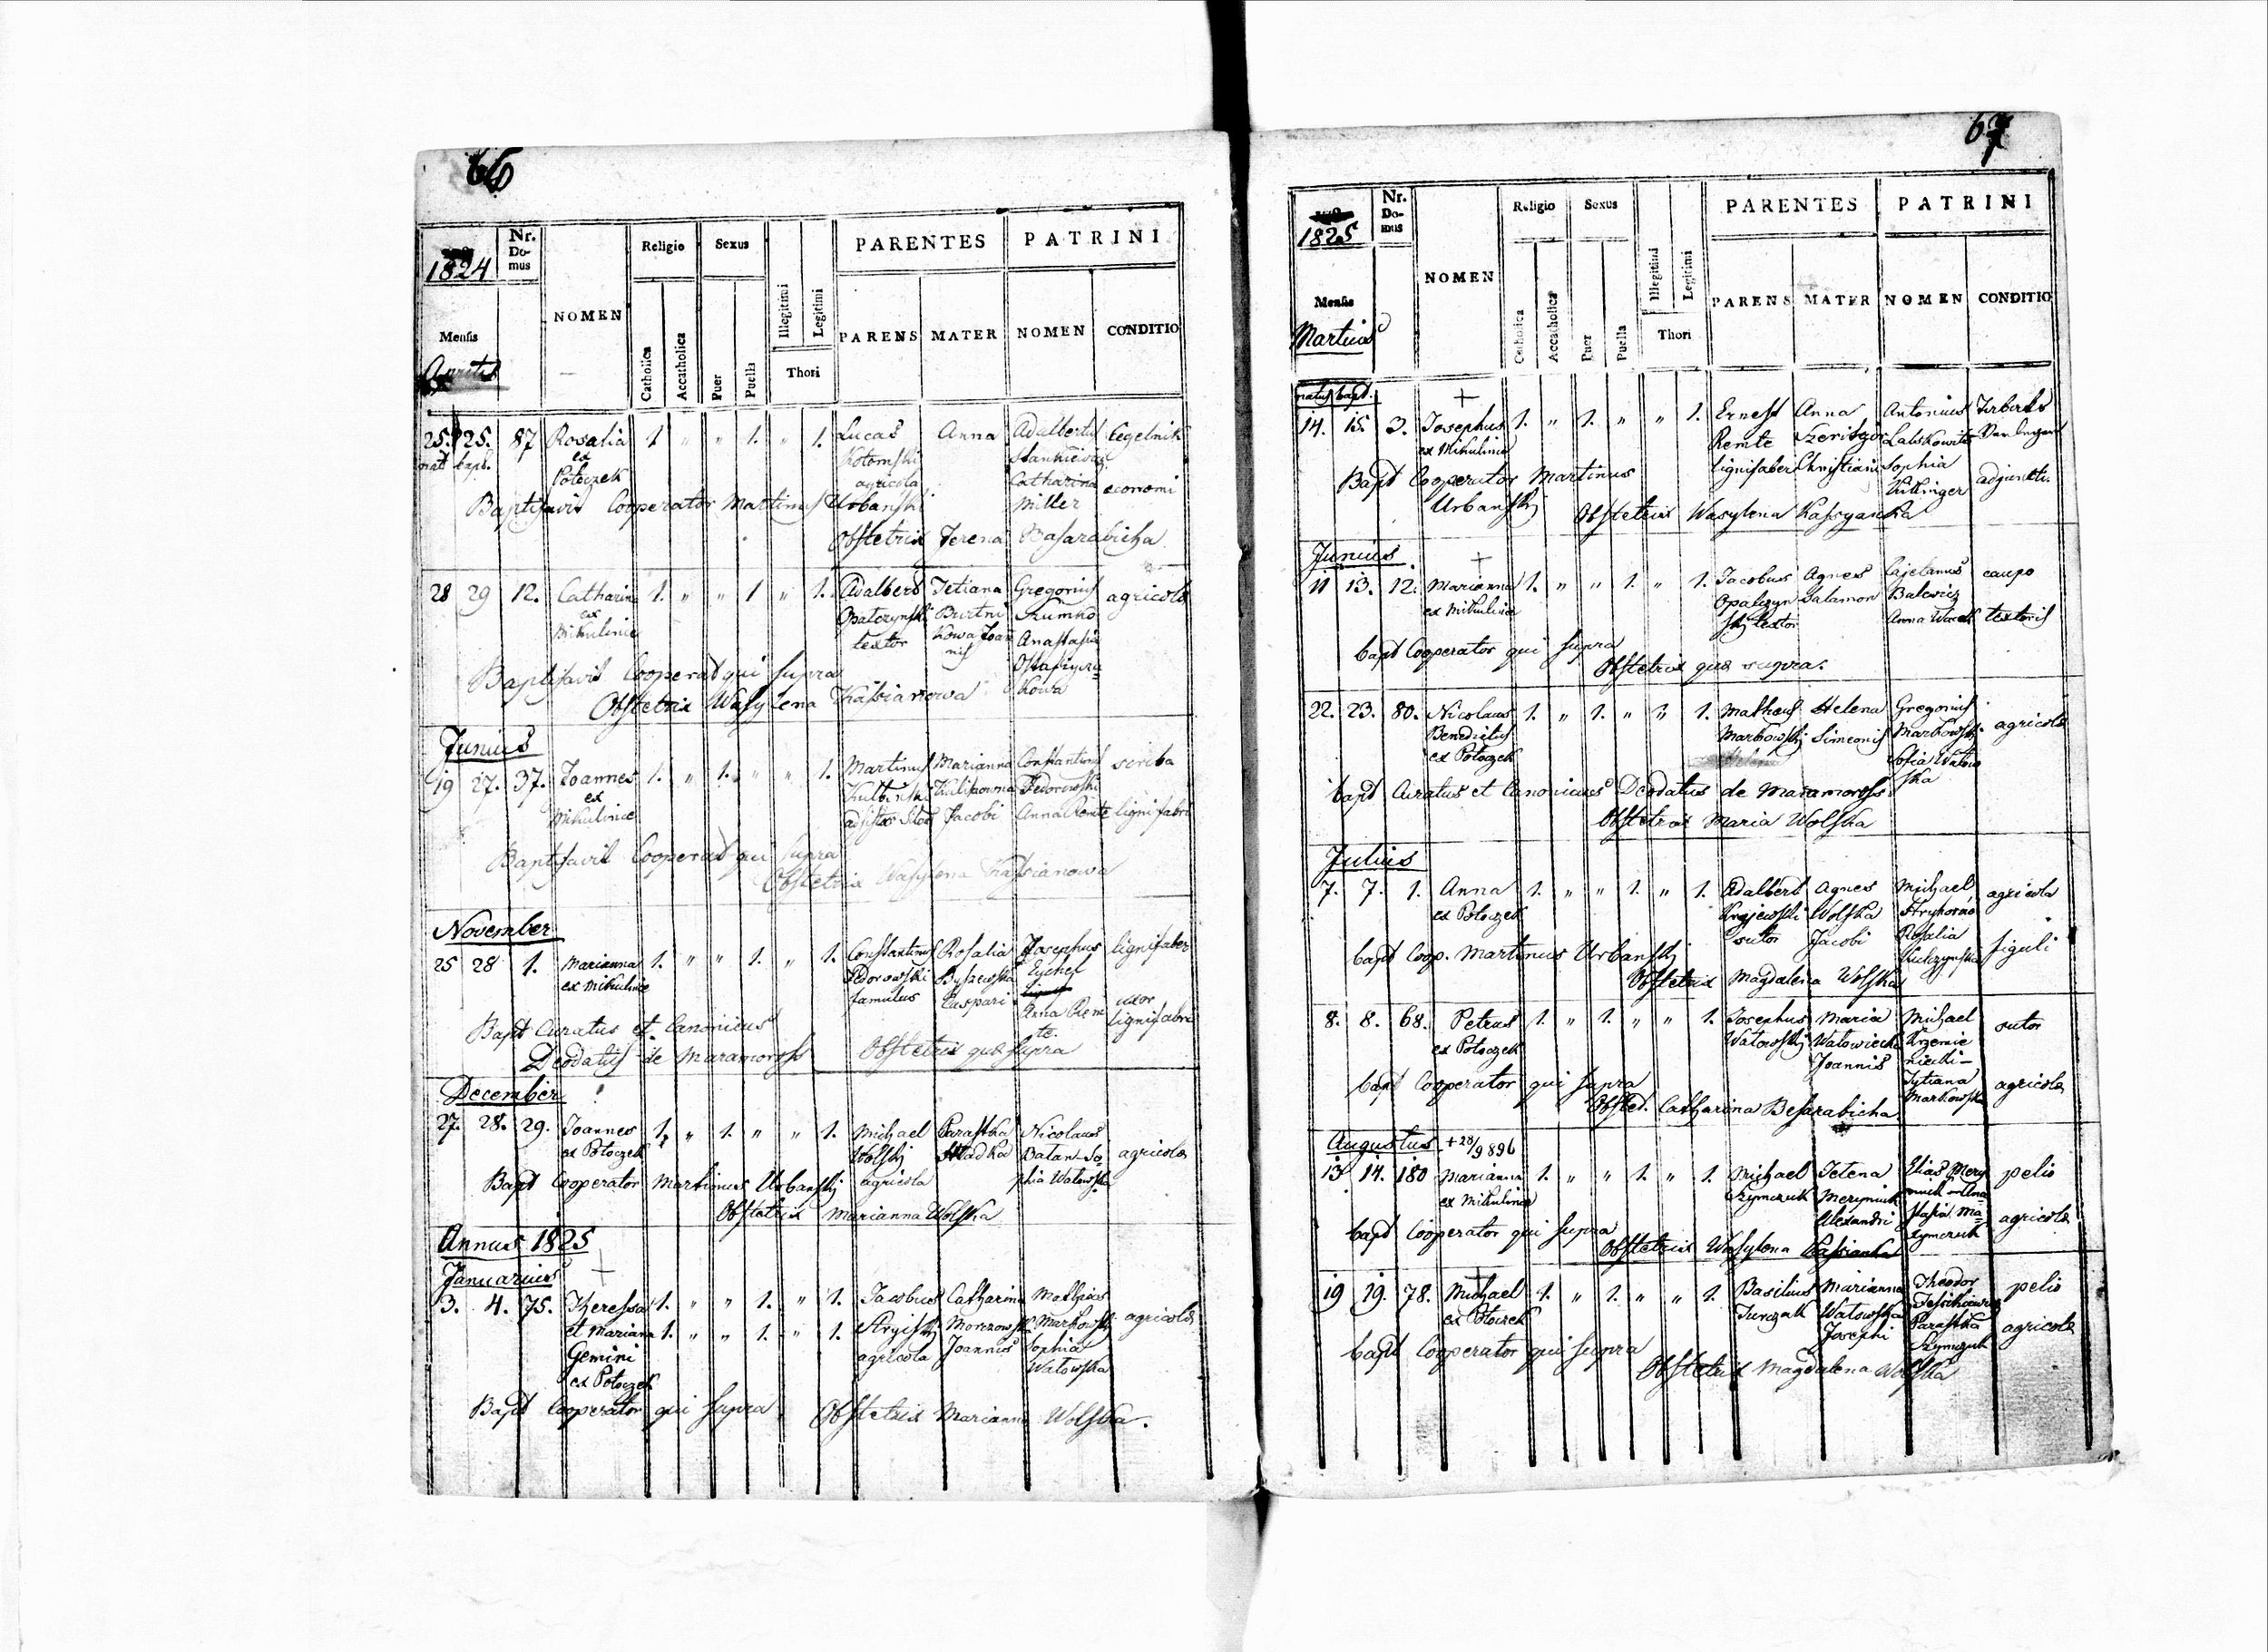 66
1824
Nr. Domus
NOMEN
Religio
Sexus
PARENTES
PATRINI
Mensis
Catholica
Accatholica
Puer
Puella
Illegitimi
Legitimi
Thori
PARENS
MATER
NOMEN
CONDITIO
Aprilis
25. 25. 87 Rosalia 1 " " 1. " 1. Lucas Anna Adalbertus
nat bapt. ex Kotomski Stankiewicz
Potoczek agricola Catharina economi
Baptisavit Cooperator Martinus Urbanski Miller
Obstetrix Jerena Basarabicha
28 29 12. Catharina 1. " " 1 " 1. Adalbert Tetiana Gregorius agricola
ex Opalczynski Skumko
Mikulince textor Kowa Joan Anastasia
nis
Baptisavit Cooperat qui supra kowa
Obstetrix Wasylena Kassianowa
Junius
19 27. 37. Joannes 1. " 1. " " 1. Martinus Marianna Constantinus scriba
ex Fedorowski
Mikulince Jacobi Anna Remte lignifabri
Baptisavit Cooperat qui supra
Obstetrix Wasylena Kassianowa
November
25 28 1. Marianna 1. " " 1. " 1. Constantinus Rosalia Josephus lignifaber
ex Mikulince Fedorowski Byszewska Eychel
famulus Caspari
Anna Rem uxor
Bapt Curatus et Canonicus te. lignifabri
Deodatus de Maramoross Obstetrix quæ supra
December
27. 28. 29. Joannes 1. " 1. " " 1. Michael Paraska Nicolaus
ex Potoczek Wolskj Hladka Batan So agricola
Bapt Cooperator Martinus Urbanskj agricola phia Watowska
Obstetrix Marianna Wolska
Annus 1825
Januarius
3. 4. 75. Theressa 1. " " 1. " 1. Jacobus Catharina Mathias
et Mariana 1. " " 1. " 1. Stryiskj Morozowska Markowskj agricola
Gemini agricola Joannis Sophia
ex Potoczek Watowska
Bapt Cooperator qui supra Obstetrix Marianna Wolska.
67
1825
Nr. Domus
NOMEN
Religio
Sexus
PARENTES
PATRINI
Mensis
Martius
Catholica
Accatholica
Puer
Puella
Illegitimi
Legitimi
Thori
PARENS
MATER
NOMEN
CONDITIO
natus bapt.
14. 15. 3. Josephus 1. " 1. " " 1. Ernest Anna Antonius
ex Mikulince Remte Labskowitz
lignifaber Christiani Sophia
Bapt Cooperator Martinus Kittinger adjuncti.
Urbanskj Obstetrix Wasylena Kassyanka
Junius
11 13. 12. Marianna 1. " " 1. " 1. Jacobus Agnes Cajetanus caupo
ex Mikulince Opalczyn Salamon Balewicz
skj textor Anna textoris
bapt Cooperator qui supra
Obstetrix quæ supra.
22. 23. 80. Nicolaus 1. " 1. " " 1. Matheus Helena Gregorius
Benedictus Markowskj Simeonis Markowskj agricola
ex Potoczek Sofia Watow
ska
bapt Curatus et Canonicus Deodatus de Maramoross
Obstetrix Maria Wolska
Julius
7. 7. 1. Anna 1. " " 1. " 1. Adalbert Agnes Michael agricola
ex Potoczek Krajewski Wolska
sutor Jacobi Rosalia
bapt Coop. Martinus Urbanskj Kulczynska figuli
Obstetrix Magdalena Wolska
8. 8. 68. Petrus 1. " 1. " " 1. Josephus Maria Michael sutor
ex Potoczek Watowskj Watowiecka Krzemie
Joannis niecki —
bapt Cooperator qui supra Tytiana agricola
Obstet. Catharina Besarabicha Markowska
Augustus + 28/9 896
13 14. 180 Marianna 1. " " 1. " 1. Michael Tetena Elias Mery pelio
ex Mikulince Szymczuk Meryniuk niuk Ana
Alexandri stasia Ma agricola
bapt Cooperator qui supra zymczuk
Obstetrix Wasylena Kassianka
19 19. 78. Michael 1. " 1. " " 1. Basilius Marianna Theodor pelio
ex Potoczek Turczak Watowska
Josephi Paraska agricola
bapt Cooperator qui supra Szymczuk
Obstetrix Magdalena Wolska